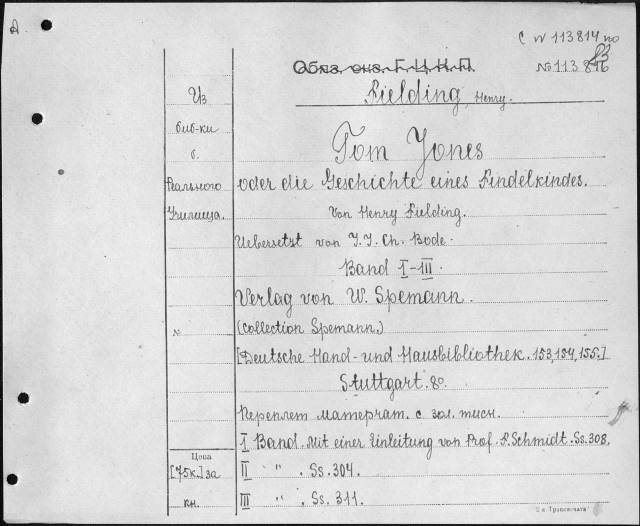 с № 113814 по
№ 113.816
Обяз. экз. Г.Ц.К.П.
Из
Fielding, Henry.
биб-ки
б.
Tom Jones
Реального
oder die Geschichte eines Findelkindes.
Училища.
Von Henry Fielding.
Uebersetzt von J. J. Ch. Bode.
Band I-III.
Verlag von W. Spemann.
№
(Collection Spemann.)
[Deutsche Hand- und Hausbibliothek. 153, 154, 155.]
Stuttgart. 8o.
Переплет матерчат. с зол. тисн.
I Band. Mit einer Einleitung von Prof. Schmidt. Ss. 308.
Цена
[75к.] за
II " . Ss. 304.
кн.
III " . Ss. 311.